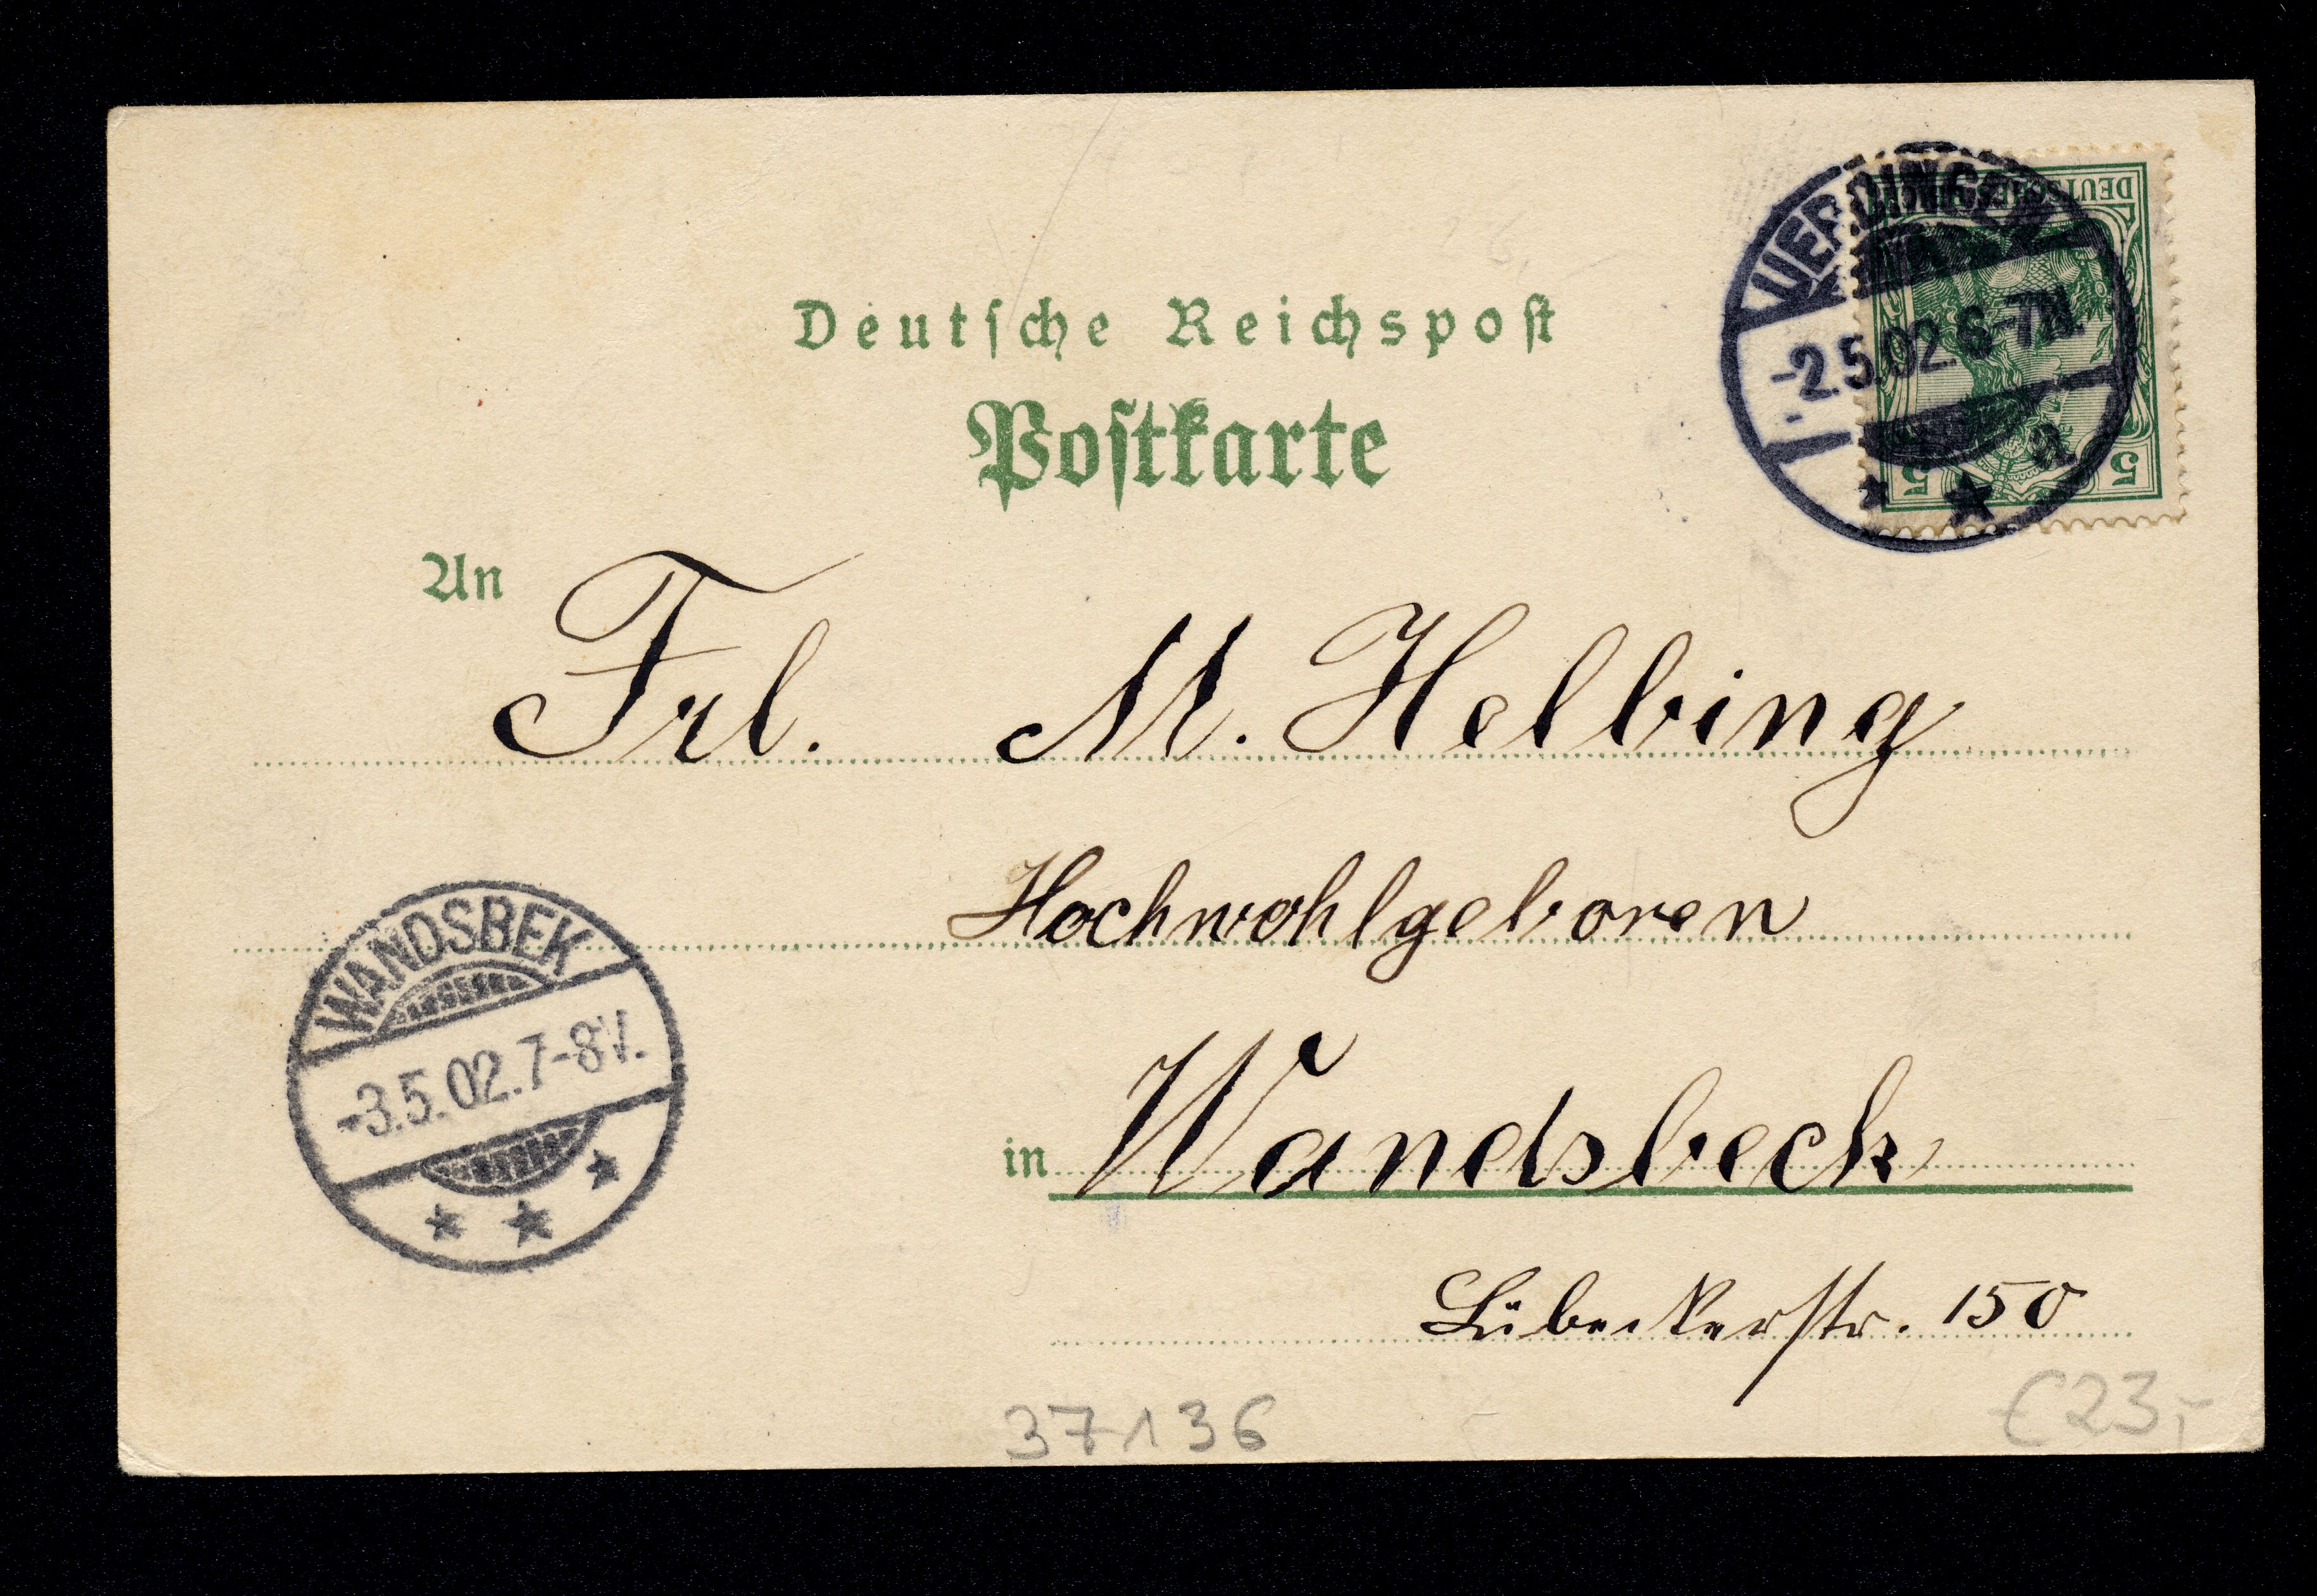 Deutsche Reichspost
Postkarte
UERDINGEN
-2.5.02.6-7N.
a
DEUTSCHES REICH
5 5
An Frl. M. Helbing
Hochwohlgeboren
WANDSBEK
-3.5.02.7-8V.
in Wandsbeck
Lübeckerstr. 150
37136
€23,-